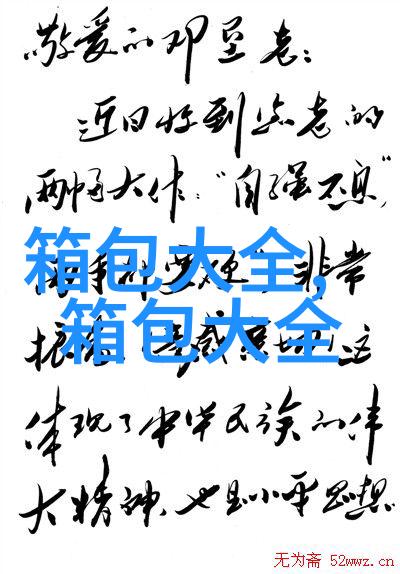 敬爱的邓垦老：
近日收到您老的
两幅大作：“自强不息”
箱包大全,
非常
箱包大全
这
体现了中华民族的伟
大精神,也是小平思想
无为斋 52wwz.cn